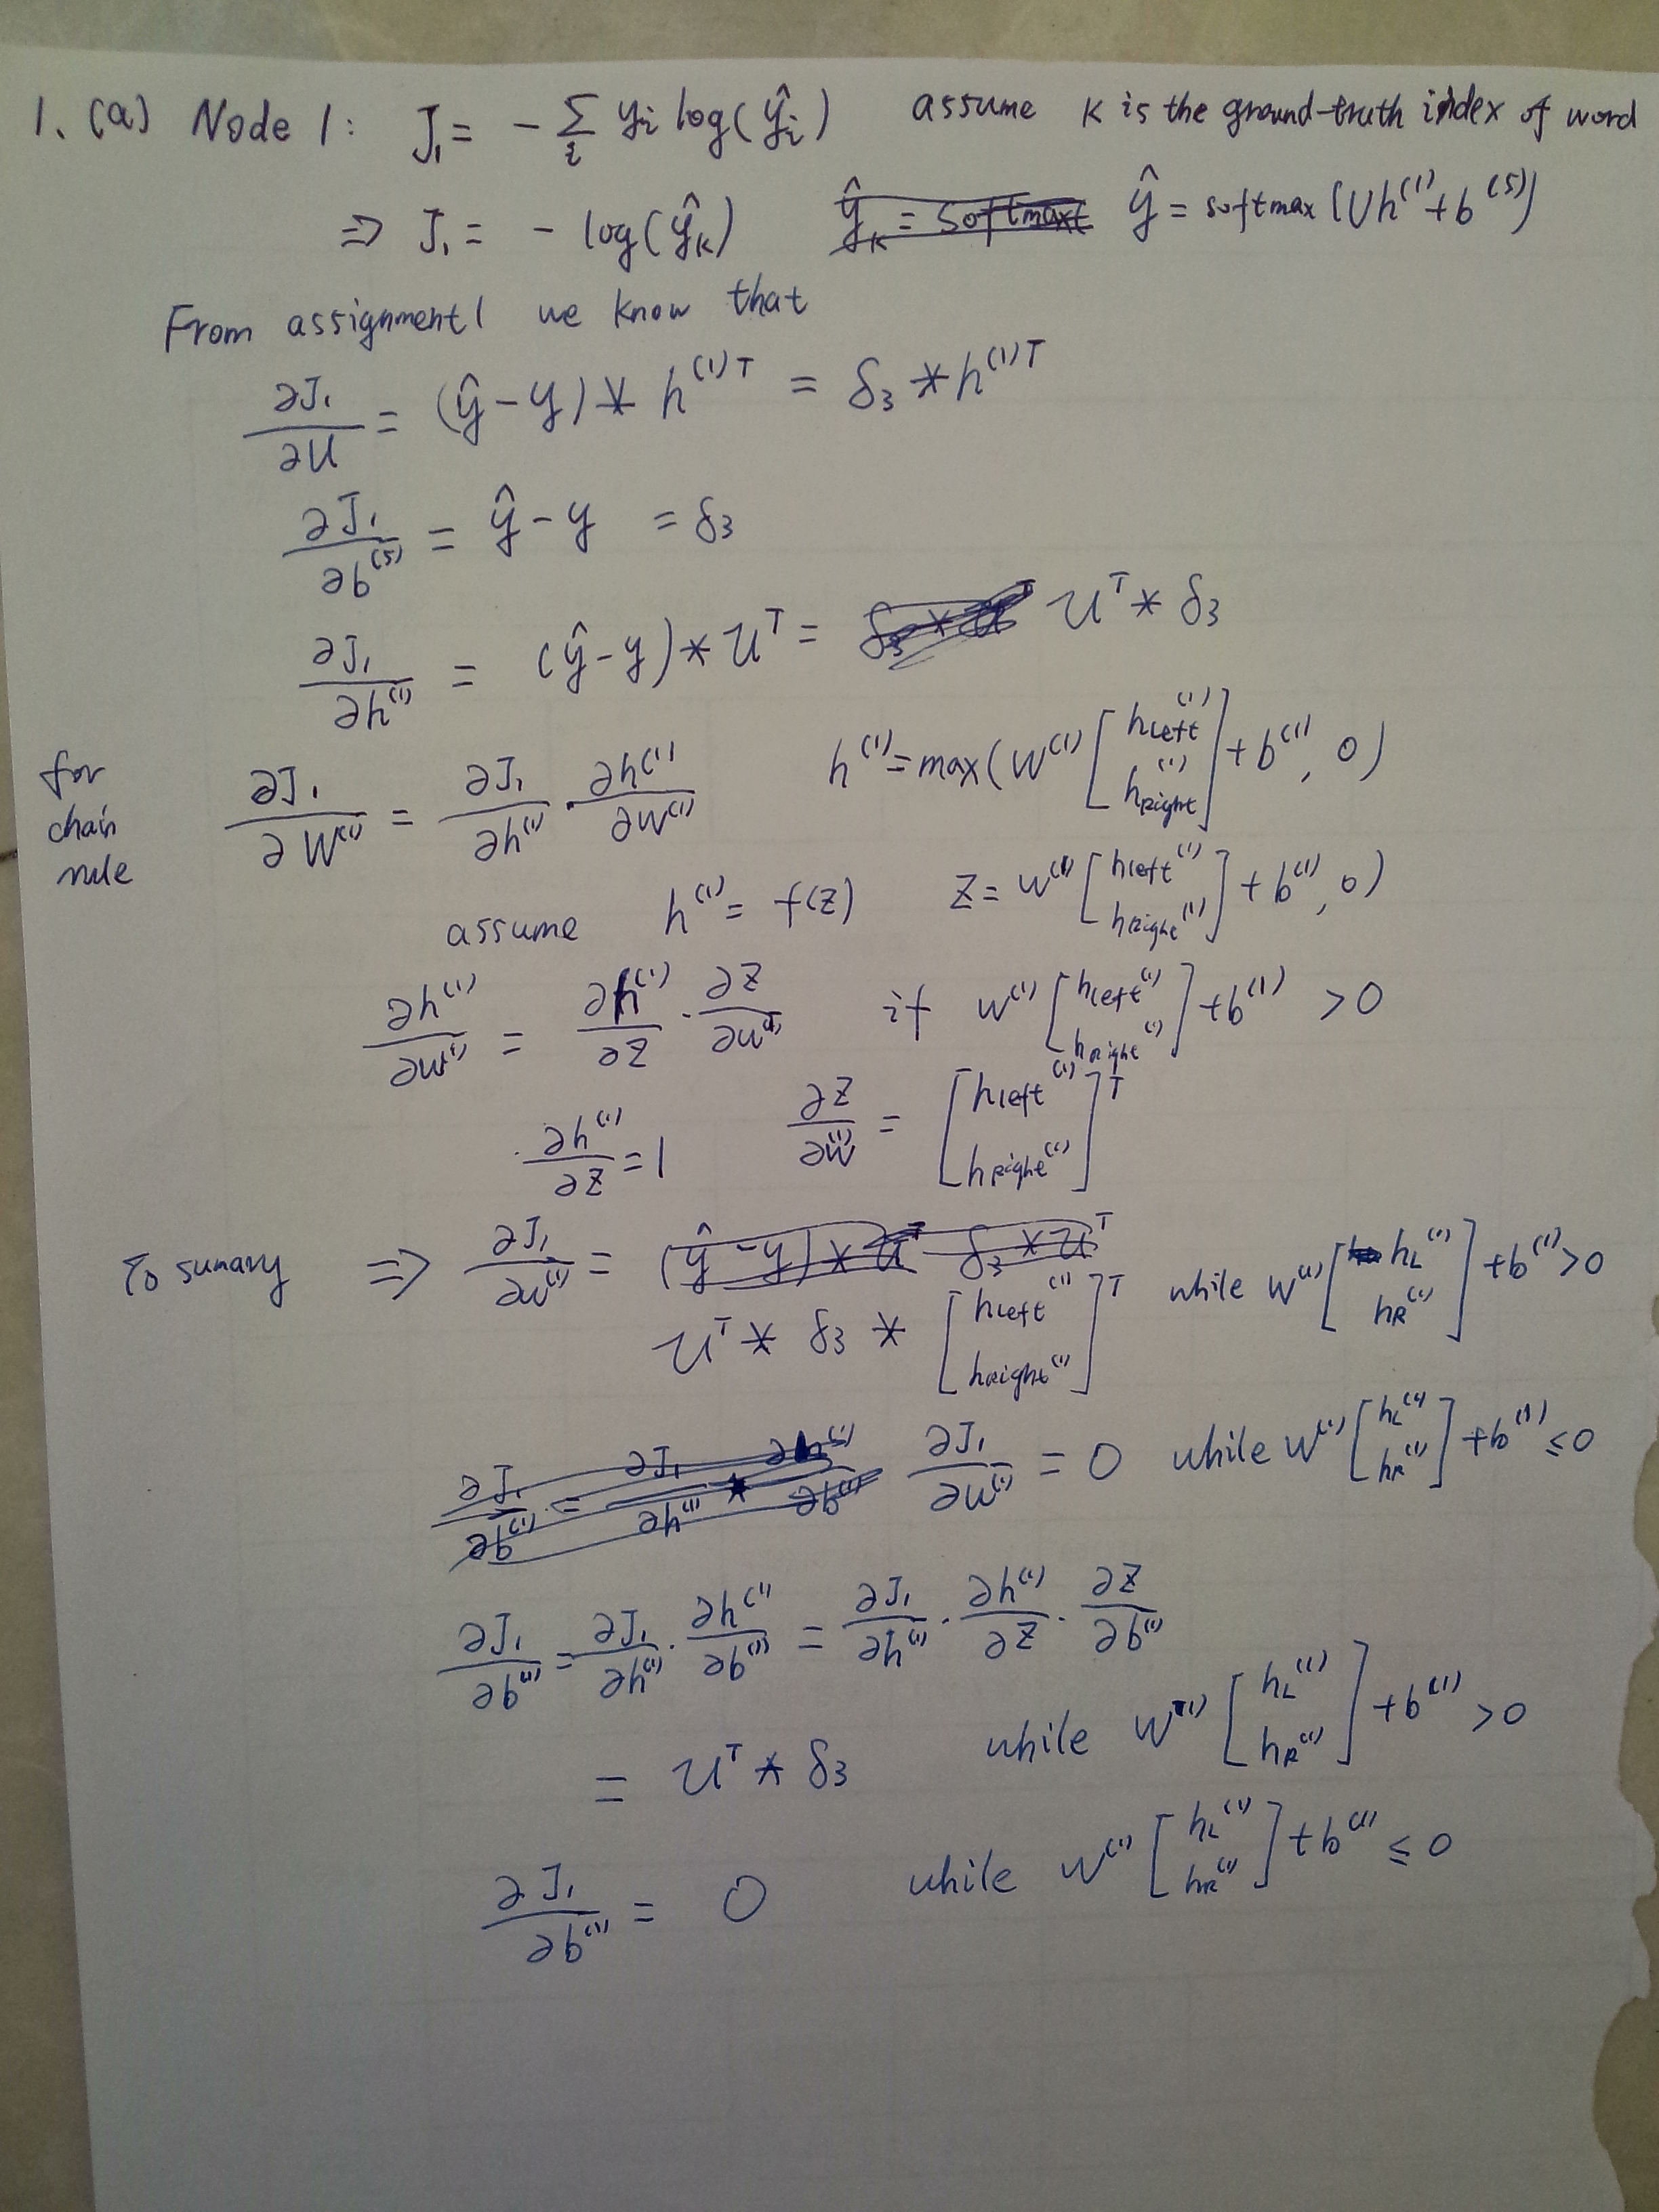 1. (a) Node 1: J₁ = - Σᵢ yᵢ log(ŷᵢ) assume K is the ground-truth index of word
⇒ J₁ = - log(ŷ_K) ŷ_K = softmax ŷ = softmax(Uh⁽¹⁾+b⁽⁵⁾)
From assignment1 we know that
∂J₁/∂U = (ŷ-y) * h⁽¹⁾ᵀ = δ₃ * h⁽¹⁾ᵀ
∂J₁/∂b⁽⁵⁾ = ŷ-y = δ₃
∂J₁/∂h⁽¹⁾ = (ŷ-y) * Uᵀ = Uᵀ * δ₃
for chain rule ∂J₁/∂W⁽¹⁾ = ∂J₁/∂h⁽¹⁾ · ∂h⁽¹⁾/∂W⁽¹⁾ h⁽¹⁾ = max(W⁽¹⁾[hLeft⁽¹⁾ hRight⁽¹⁾] + b⁽¹⁾, 0)
assume h⁽¹⁾ = f(z) z = W⁽¹⁾[hLeft⁽¹⁾ hRight⁽¹⁾] + b⁽¹⁾, 0)
∂h⁽¹⁾/∂W⁽¹⁾ = ∂h⁽¹⁾/∂z · ∂z/∂W⁽¹⁾ if W⁽¹⁾[hLeft⁽¹⁾ hRight⁽¹⁾] + b⁽¹⁾ > 0
∂h⁽¹⁾/∂z = 1 ∂z/∂W⁽¹⁾ = [hLeft⁽¹⁾ hRight⁽¹⁾]ᵀ
To sumary ⇒ ∂J₁/∂W⁽¹⁾ = (ŷ-y) * Uᵀ δ₃ * Uᵀ while W⁽¹⁾[h_L⁽¹⁾ h_R⁽¹⁾] + b⁽¹⁾ > 0
Uᵀ * δ₃ * [hLeft⁽¹⁾ hRight⁽¹⁾]ᵀ
∂J₁/∂b⁽¹⁾ = ∂J₁/∂h⁽¹⁾ * ∂h⁽¹⁾/∂b⁽¹⁾ ∂J₁/∂W⁽¹⁾ = 0 while W⁽¹⁾[h_L⁽¹⁾ h_R⁽¹⁾] + b⁽¹⁾ ≤ 0
∂J₁/∂b⁽¹⁾ = ∂J₁/∂h⁽¹⁾ · ∂h⁽¹⁾/∂b⁽¹⁾ = ∂J₁/∂h⁽¹⁾ · ∂h⁽¹⁾/∂z · ∂z/∂b⁽¹⁾
= Uᵀ * δ₃ while W⁽¹⁾[h_L⁽¹⁾ h_R⁽¹⁾] + b⁽¹⁾ > 0
∂J₁/∂b⁽¹⁾ = 0 while W⁽¹⁾[h_L⁽¹⁾ h_R⁽¹⁾] + b⁽¹⁾ ≤ 0